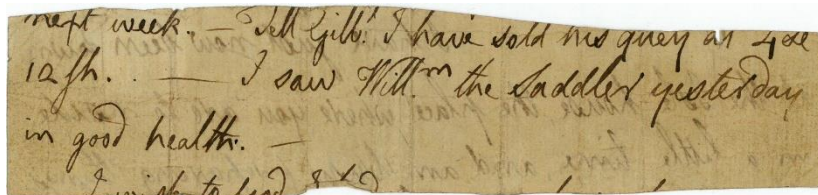 next week. — Tell Gilb.t I have sold his quey at 4£
12sh. . — I saw Will.m the Saddler yesterday
in good health. —
I wish to